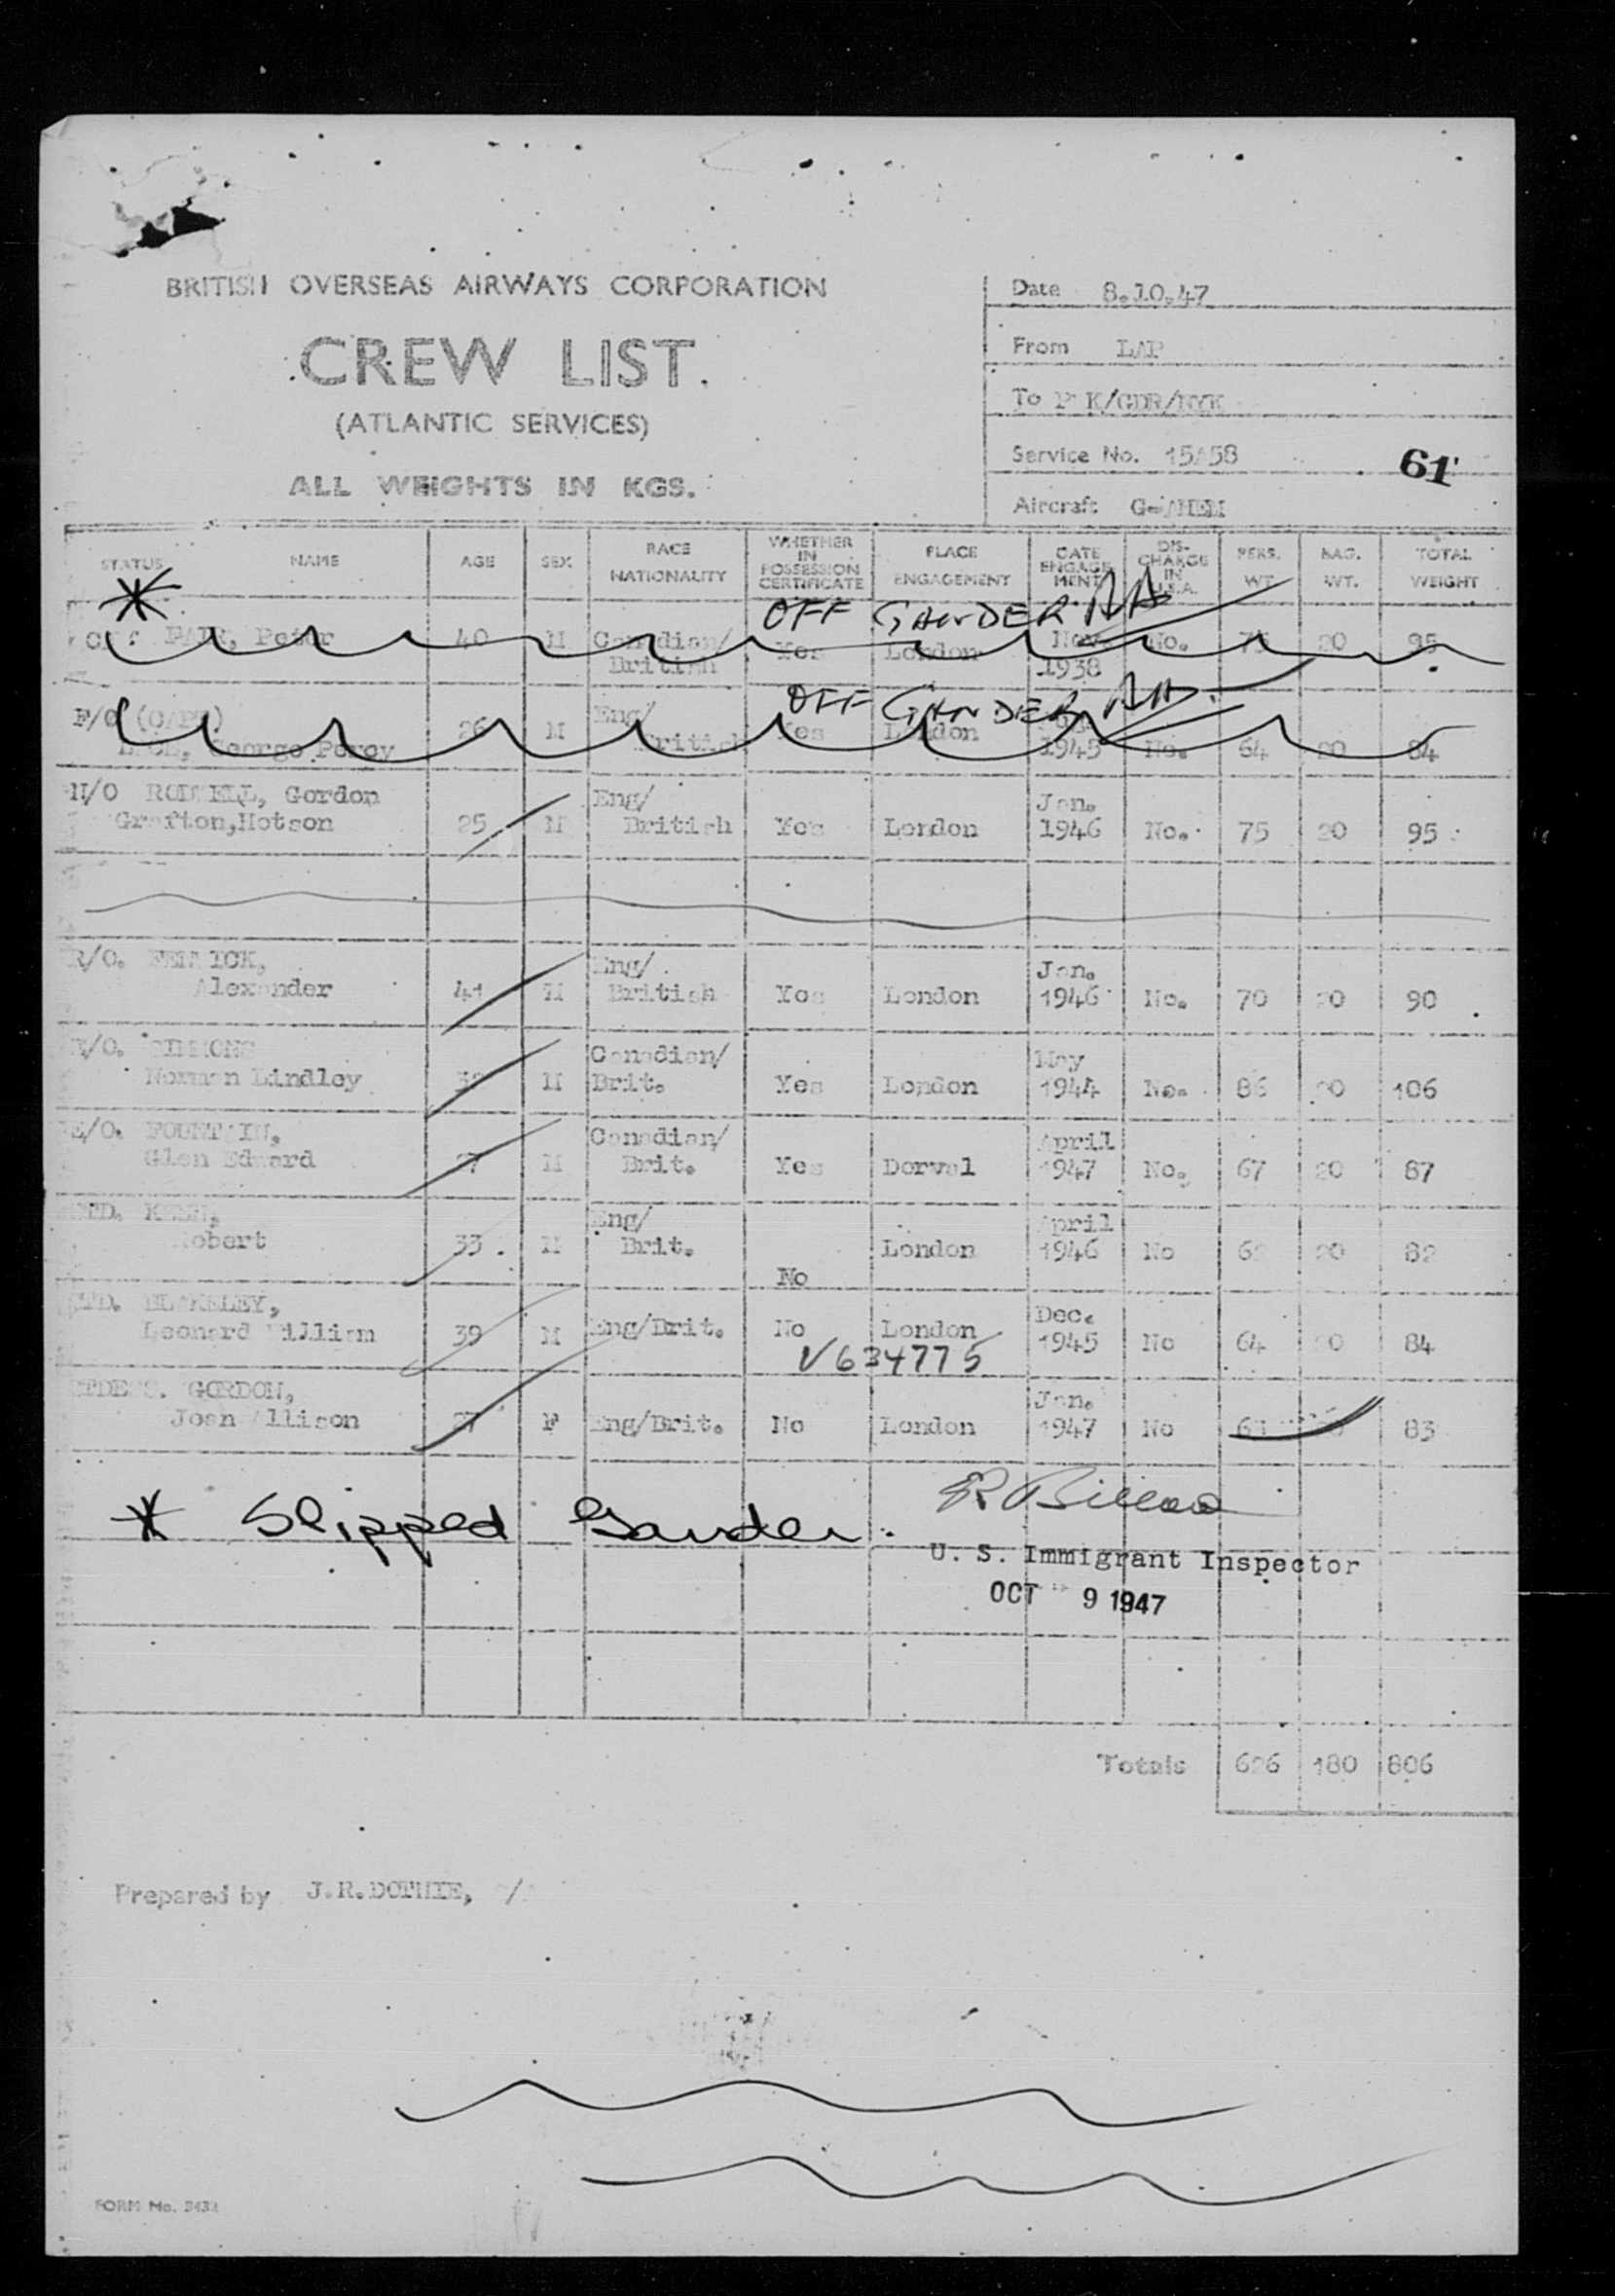 BRITISH OVERSEAS AIRWAYS CORPORATION
CREW LIST.
(ATLANTIC SERVICES)
ALL WEIGHTS IN KGS.
Date 8.10.47
From LAP
To K/GDR/NYK
Service No. 15A58
61
Aircraft G-AHEM
STATUS NAME AGE SEX RACE NATIONALITY WHETHER IN POSSESSION CERTIFICATE PLACE ENGAGEMENT DATE ENGAGEMENT DISCHARGE IN U.S.A. PERS. WT. BAG. WT. TOTAL WEIGHT
*
OFF GANDER
Peter 40 M Canadian/ British Yes London Nov. 1938 No. 75 20 95
OFF GANDER
F/O (CAPT)
George Percy 26 M Eng/ British Yes London 1945 No. 64 20 84
N/O Gordon
Grafton, Hotson 25 M Eng/ British Yes London Jan. 1946 No. 75 20 95
R/O. FENWICK,
Alexander 41 M Eng/ British Yes London Jan. 1946 No. 70 20 90
SIMMONS
Norman Lindley M Canadian/ Brit. Yes London May 1944 No. 86 20 106
E/O. FOUNTAIN,
Glen Edward 27 M Canadian/ Brit. Yes Dorval April 1947 No. 67 20 87
Robert 33 M Eng/ Brit. No London April 1946 No 62 20 82
BLAKELEY,
Leonard William 39 M Eng/Brit. No London Dec. 1945 No 64 20 84
V634775
GORDON,
Joan Allison 27 F Eng/Brit. No London Jan. 1947 No 63 83
* Slipped Gander.
U. S. Immigrant Inspector
OCT 9 1947
Totals 626 180 806
Prepared by J.R.DOTHIE,
FORM No.